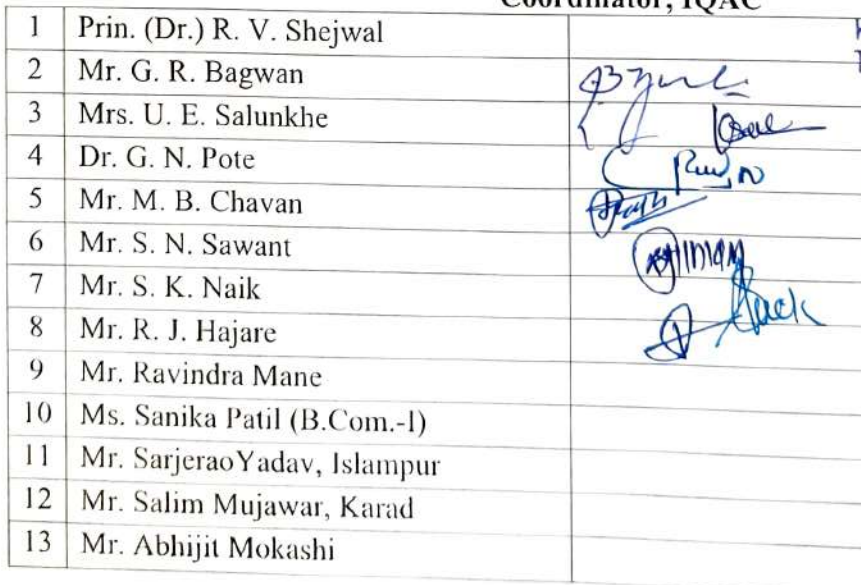 Coordinator, IQAC
1 Prin. (Dr.) R. V. Shejwal
2 Mr. G. R. Bagwan
3 Mrs. U. E. Salunkhe
4 Dr. G. N. Pote
5 Mr. M. B. Chavan
6 Mr. S. N. Sawant
7 Mr. S. K. Naik
8 Mr. R. J. Hajare
9 Mr. Ravindra Mane
10 Ms. Sanika Patil (B.Com.-I)
11 Mr. SarjeraoYadav, Islampur
12 Mr. Salim Mujawar, Karad
13 Mr. Abhijit Mokashi